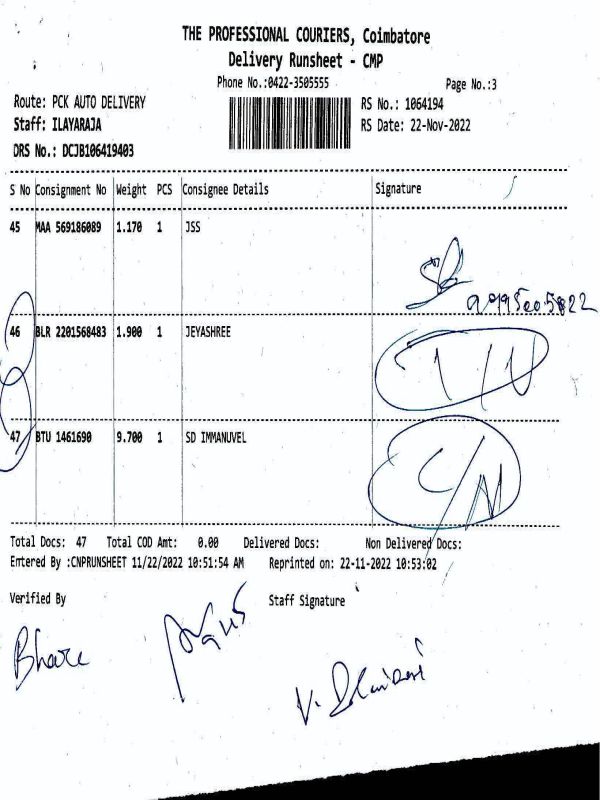 THE PROFESSIONAL COURIERS, Coimbatore
Delivery Runsheet - CMP
Phone No.:0422-3505555 Page No.:3
Route: PCK AUTO DELIVERY RS No.: 1064194
Staff: ILAYARAJA RS Date: 22-Nov-2022
DRS No.: DCJB106419403
S No Consignment No Weight PCS Consignee Details Signature
45 MAA 569186089 1.170 1 JSS
46 BLR 2201568483 1.900 1 JEYASHREE
47 BTU 1461690 9.700 1 SD IMMANUVEL
Total Docs: 47 Total COD Amt: 0.00 Delivered Docs: Non Delivered Docs:
Entered By :CNPRUNSHEET 11/22/2022 10:51:54 AM Reprinted on: 22-11-2022 10:53:02
Verified By Staff Signature